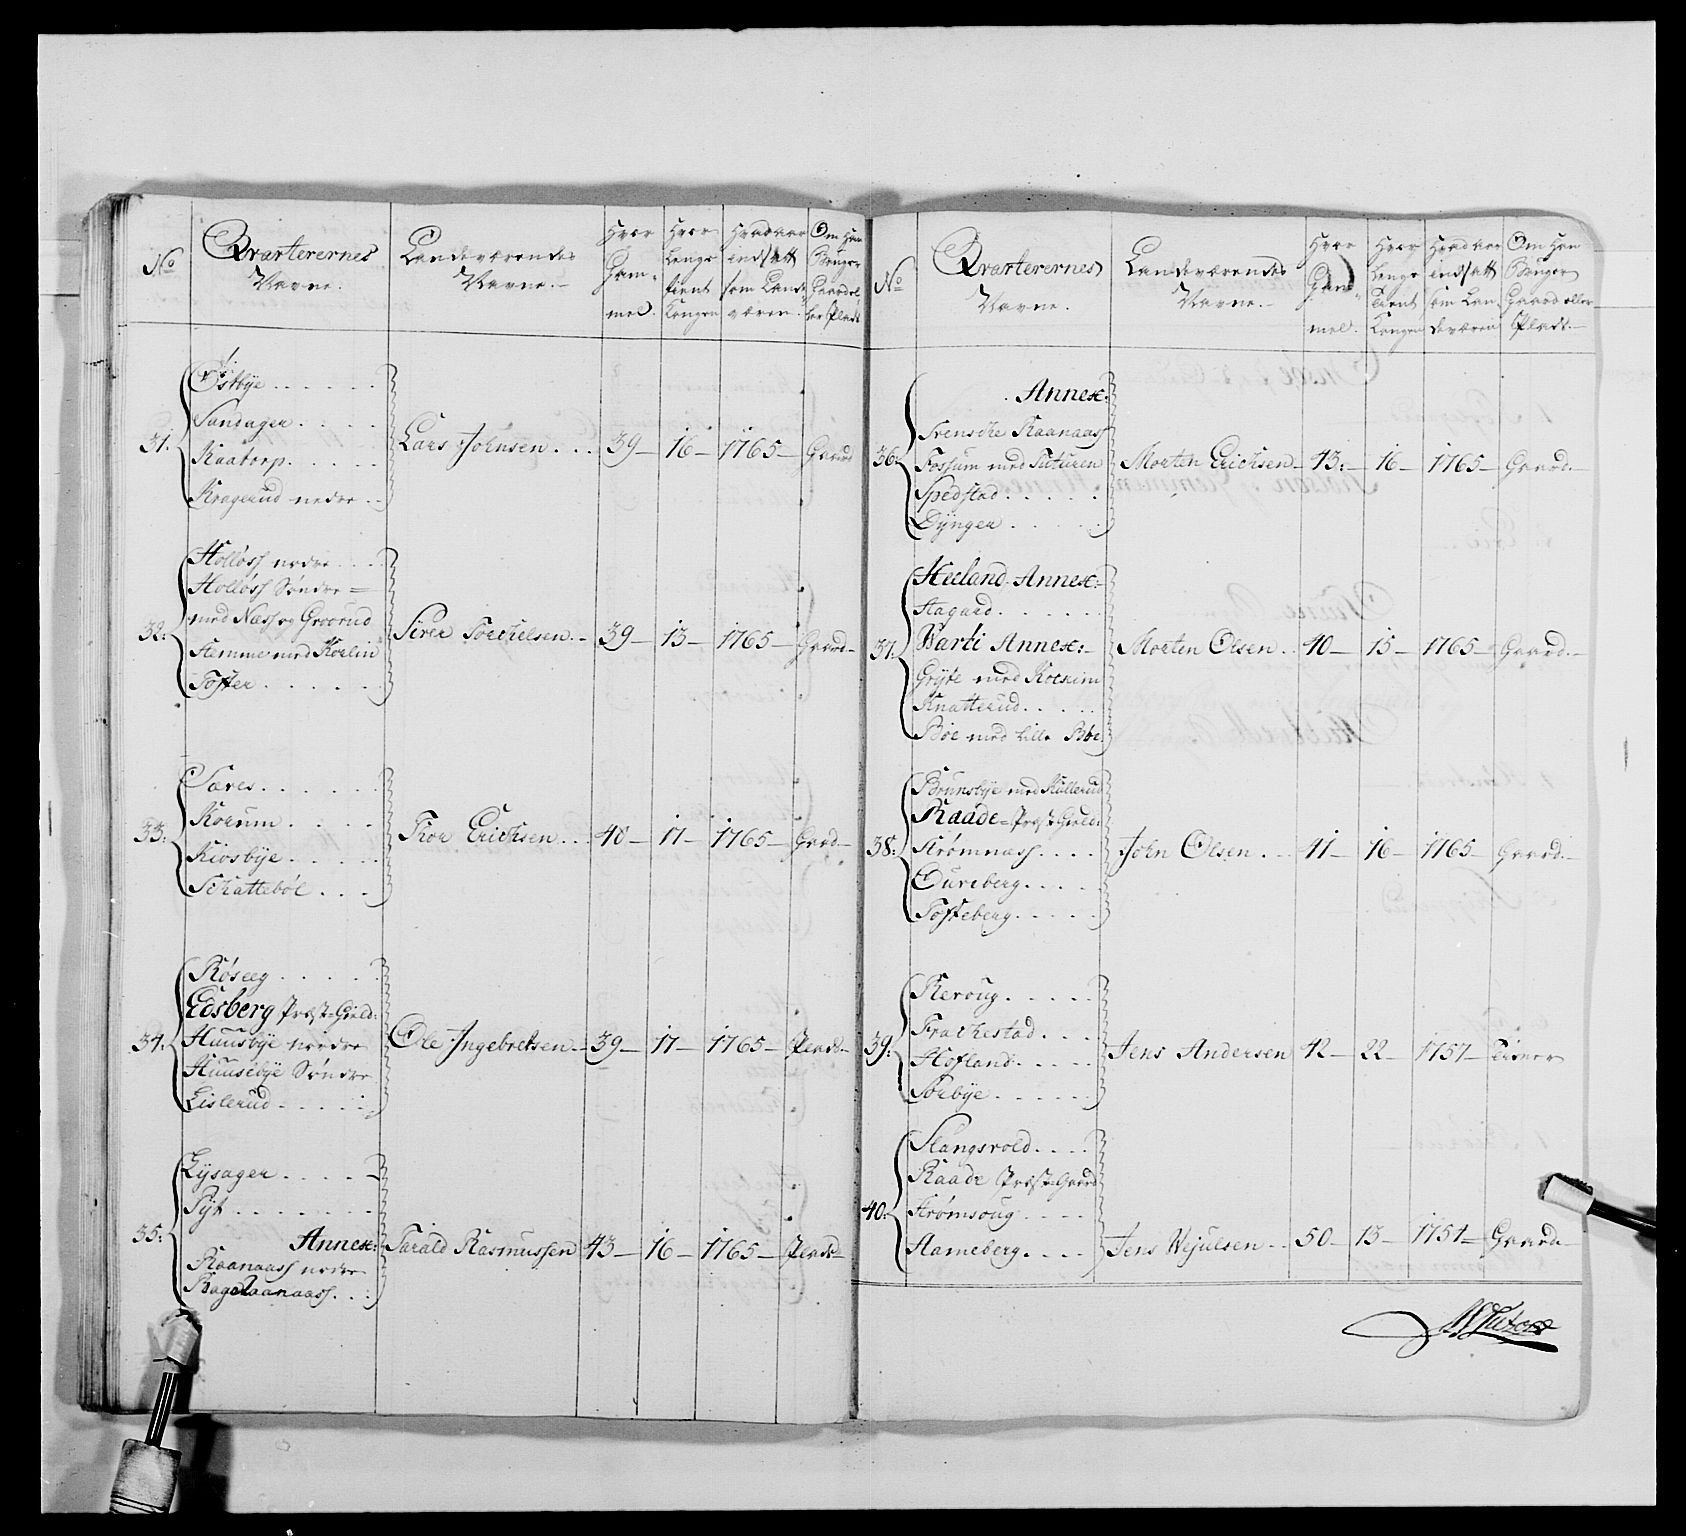 No
Qvarterernes
Navne.
Landeværendes
Navne.
Hvor
Gam-
mel.
Hvor
Lenge
tient
Kongen
Hvad aar
indsatt
som Lande
væren.
Om Han
Bruger
Gaard el-
ler Plads
31.
Østbye
Sandager
Kaatorp
Kragerud nedre
Lars Johnsen
39 — 16 — 1765 — Gaard
32.
Holløss nedre
Holløss Søndre =
med Nass og Groerud
Hemme med Kortin
Tofter
Siver Torchelsen
39 — 13 — 1765 — Gaard —
33.
Sæves
Korum
Kiosbye
Schattebøl
Thor Erichsen
40 — 17 — 1765 — Gaard —
34.
Røseeg
Edsberg Præst-Gield:
Huusbye nordre
Huusebye Søndre
Lislerud
Ole Ingebretsen
39 — 17 — 1765 — Plads —
35.
Lysager
Syt
Annex:
Raanaass nedre
Bagaaanaass
Tarald Rasmussen
43 — 16 — 1765 — Plads —
No
Qvarterernes
Navne.
Landeværendes
Navne.
Hvor
Gam-
mel.
Hvor
Lenge
Tient
Kongen
Hvad aar
indsatt
som Lan-
deværn
Om Han
Bruger
Gaard eller
Plads.
36.
Annex:
Svensche Raanaass
Fossum med Tuturen
Spedstad
Dynger
Morten Erichsen
43 — 16 — 1765 — Gaard.
37.
Heeland Annex:
Aagaard
Warti Annex:
Gryte med Kolrim
Knatterud
Bøe med Lille Bøe
Morten Olsen
40 — 15 — 1765 — Gaard.
38.
Brunsbye med Kullerud
Raade-Præst-Gield:
Strømnass
Dureberg
Tofteberg
John Olsen
41 — 16 — 1765 — Gaard.
39.
Keroug
Frackestad
Hofland
Sørbye
Jens Andersen
42 — 22 — 1757 — Tiener
40.
Slangsvold
Raade Præst-Gaard
Strømsoug
Aameberg
Jens Wejulsen
50 — 13 — 1754 — Gaard